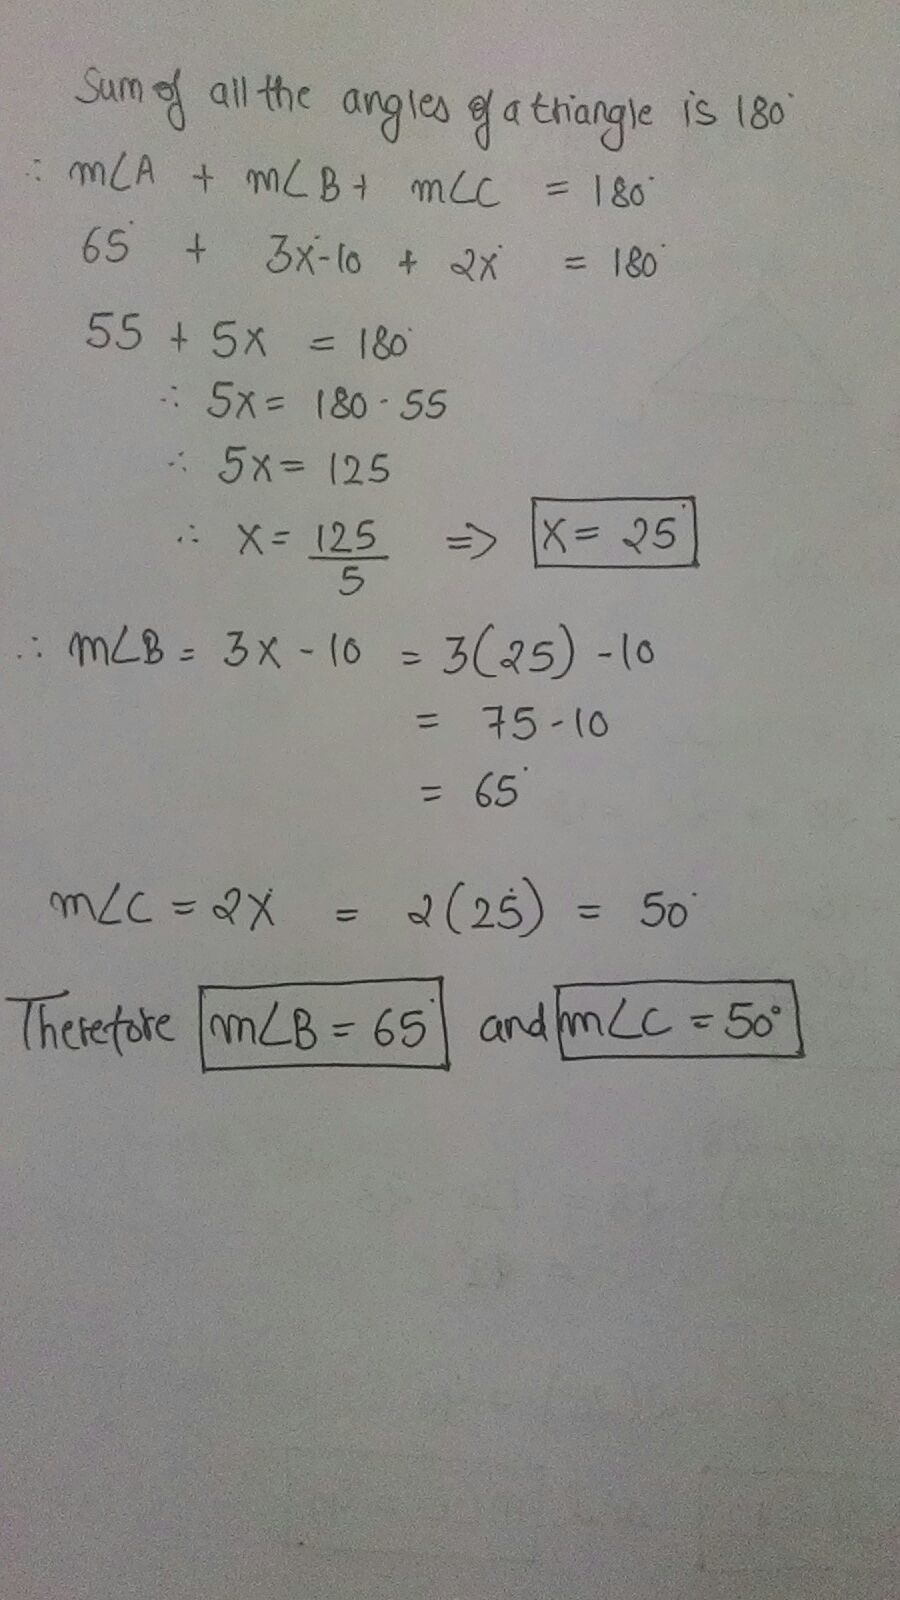 Sum of all the angles of a triangle is 180°
∴ m∠A + m∠B + m∠C = 180°
65° + 3x°-10 + 2x° = 180°
55 + 5x = 180°
∴ 5x = 180 - 55
∴ 5x = 125
∴ x = 125/5 => x = 25°
∴ m∠B = 3x - 10 = 3(25) - 10
= 75 - 10
= 65°
m∠C = 2x = 2(25) = 50°
Therefore m∠B = 65° and m∠C = 50°